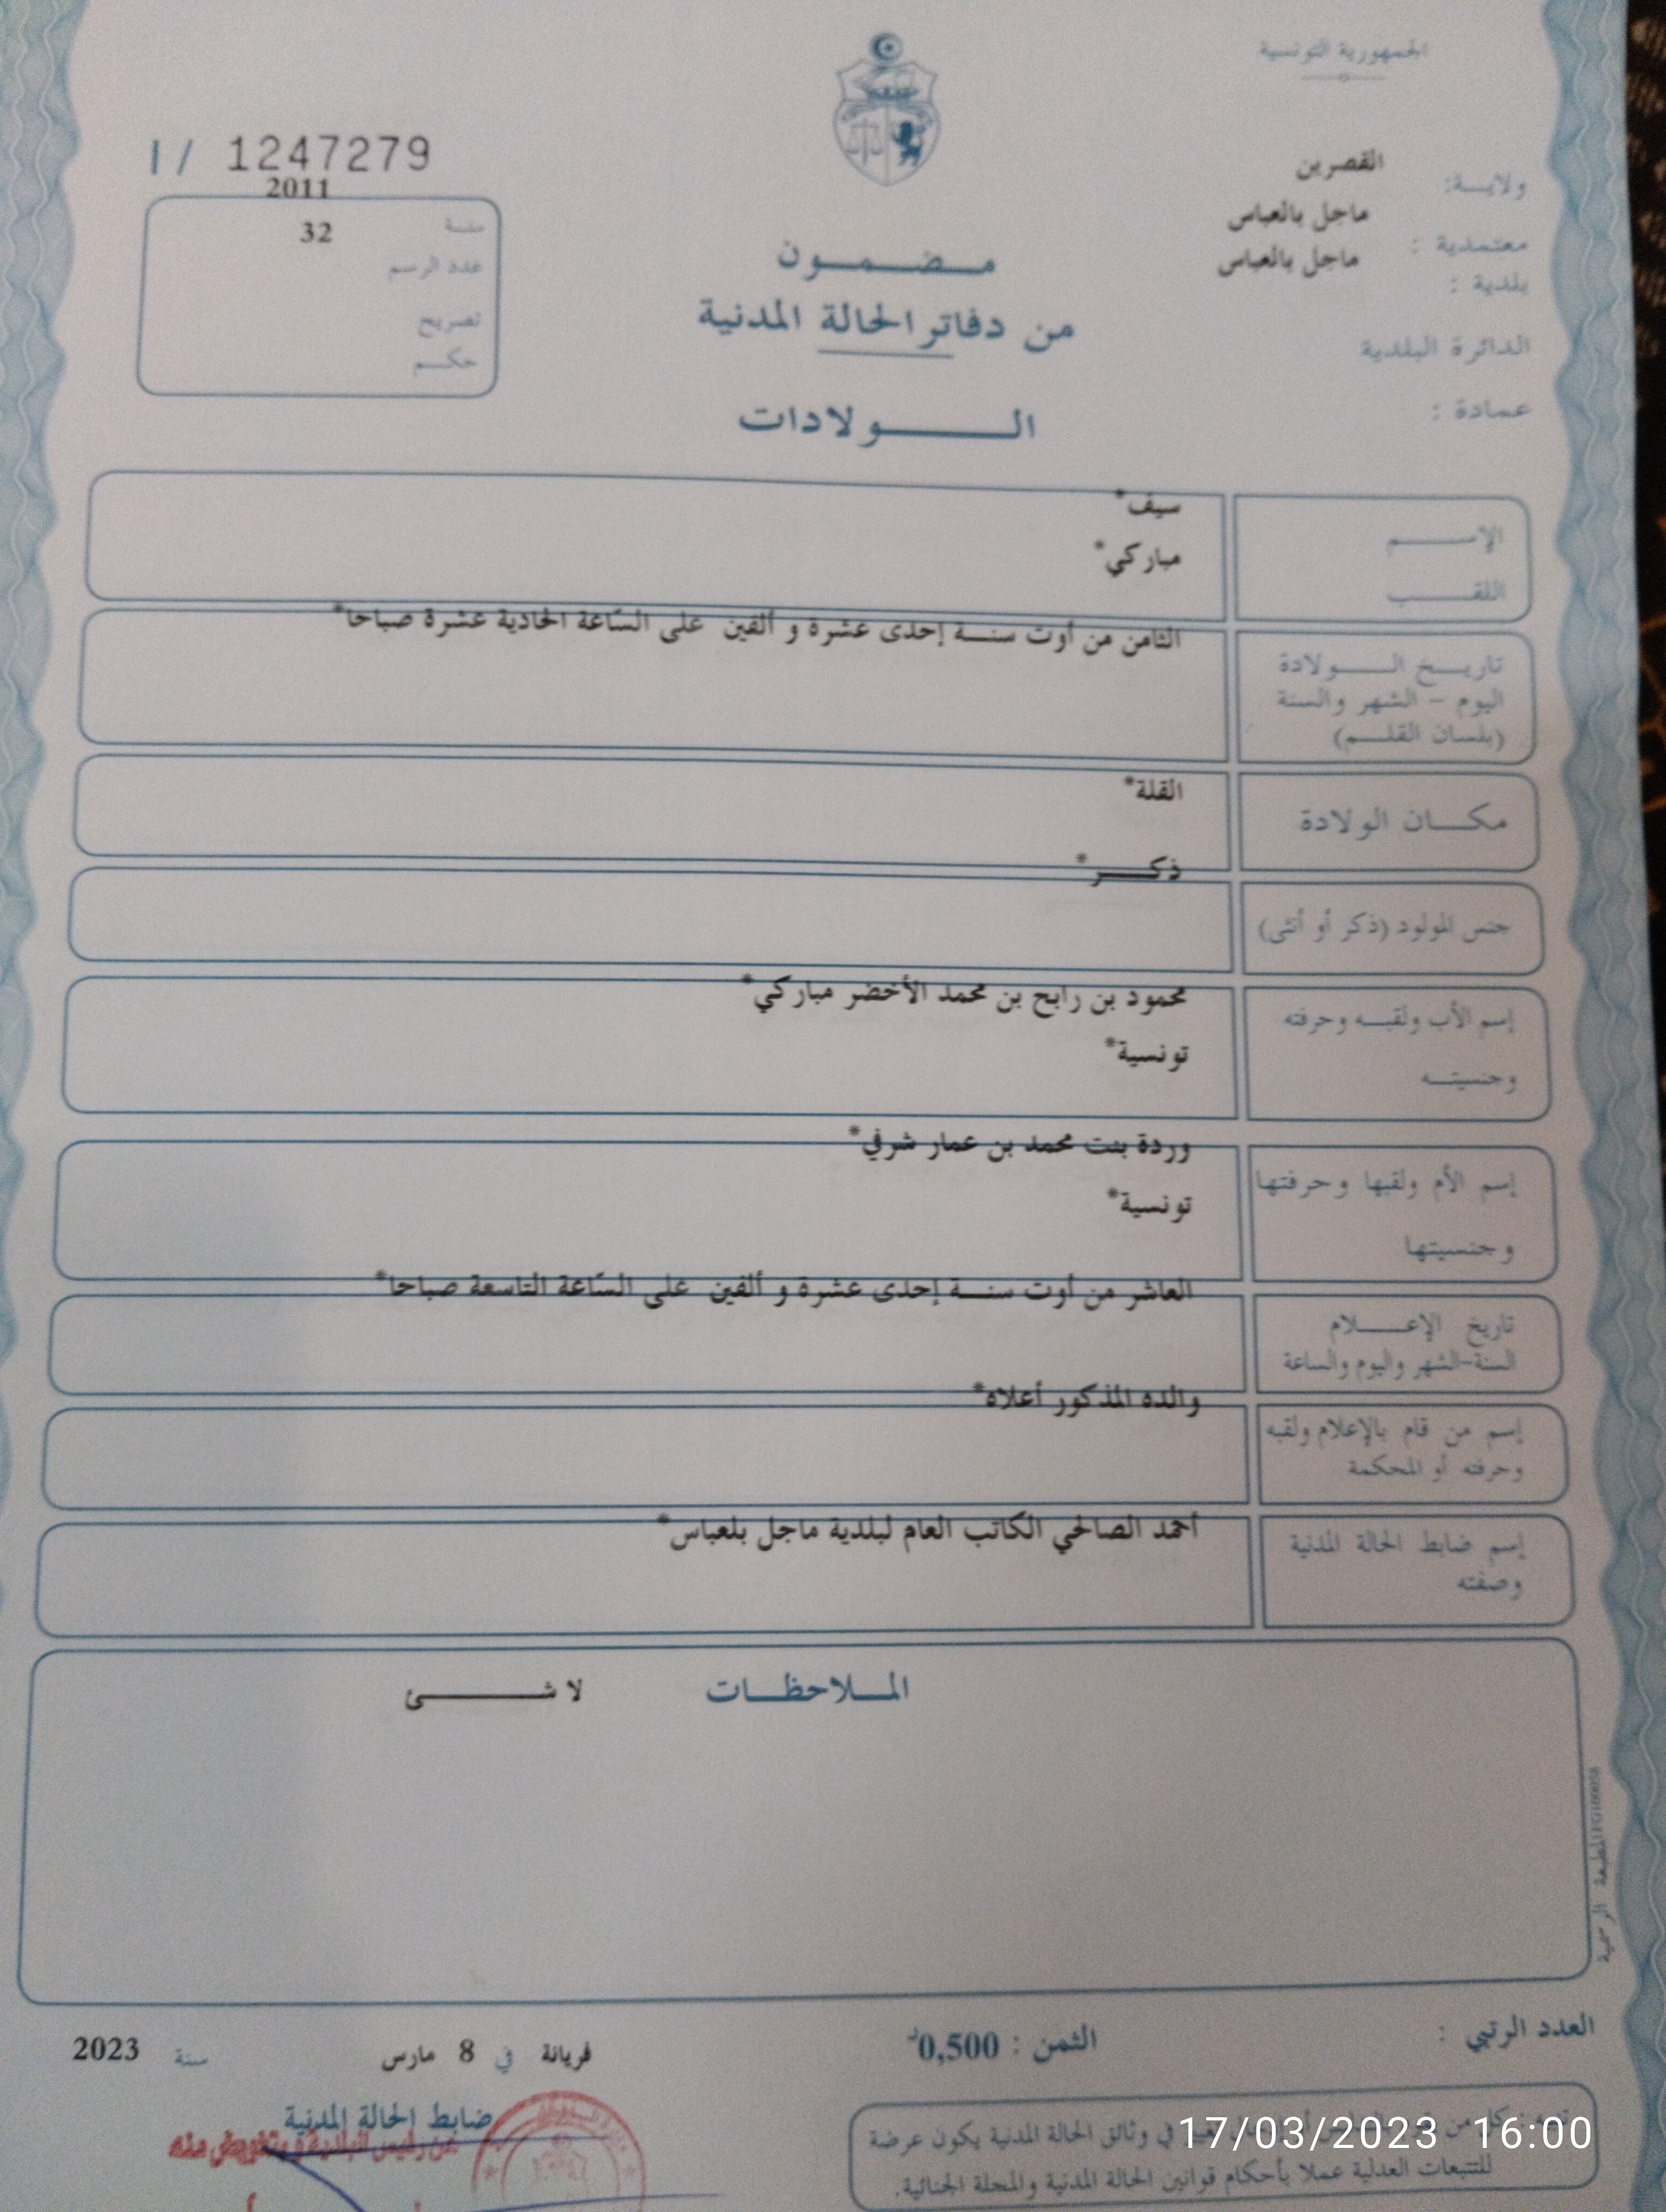 الجمهورية التونسية
ولايـــة: القصرين
معتمدية : ماجل بالعباس
بلدية : ماجل بالعباس
الدائرة البلدية
عمادة :
مـــضـــمـــون
من دفاتر الحالة المدنية
الـــــولادات
I / 1247279
2011
سنة 32
عدد الرسم
تصريح
حكــم
الإســـم سيف*
اللقـــب مباركي*
تاريــخ الــــولادة الثامن من أوت سنــة إحدى عشرة و ألفين على السّاعة الحادية عشرة صباحا*
اليوم – الشهر والسنة
(بلسان القلــم)
مكـــان الولادة القلة*
جنس المولود (ذكر أو أنثى) ذكـــر*
إسم الأب ولقبــه وحرفته محمود بن رابح بن محمد الأخضر مباركي*
وجنسيتــه تونسية*
إسم الأم ولقبها وحرفتها وردة بنت محمد بن عمار شرفي*
وجنسيتها تونسية*
تاريخ الإعــــلام العاشر من أوت سنــة إحدى عشرة و ألفين على السّاعة التاسعة صباحا*
السنة-الشهر واليوم والساعة
إسم من قام بالإعلام ولقبه والده المذكور أعلاه*
وحرفته أو المحكمة
إسم ضابط الحالة المدنية أحمد الصالحي الكاتب العام لبلدية ماجل بلعباس*
وصفته
المــلاحظــات لا شــــــئ
المطبعة الرسمية
العدد الرتبي :
الثمن : 0,500د
فريانة في 8 مارس سنة 2023
ضابط الحالة المدنية
عن رئيس البلدية وبتفويض منه
في وثائق الحالة المدنية يكون عرضة
للتتبعات العدلية عملا بأحكام قوانين الحالة المدنية والمجلة الجنائية.
17/03/2023 16:00